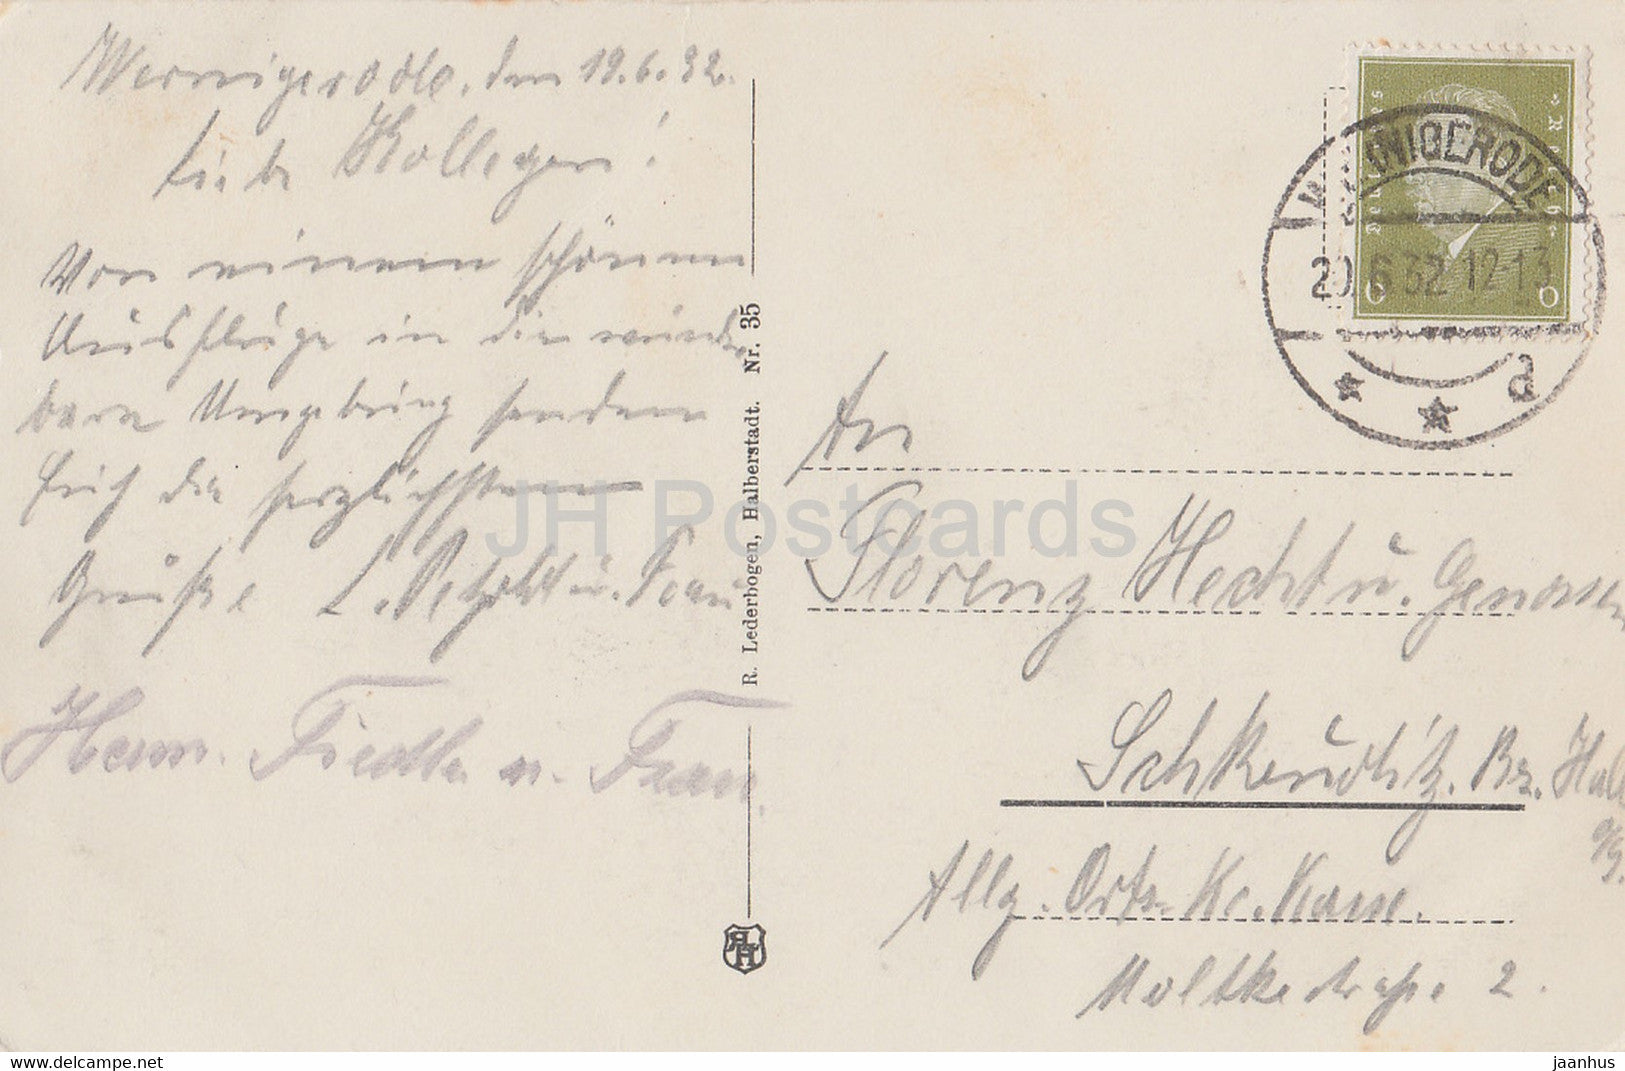 Wernigerode, den 19.6.32.
Liebe Kollegen!
Von einem schönen
Ausfluge in die wunder
bare Umgebung senden
Euch die herzlichsten
Grüße L. Petzold u. Frau
Herm. Fiedler u. Frau.
R. Lederbogen, Halberstadt. Nr. 35
RLH
Deutsches Reich
6 6
WERNIGERODE
20.6.32.12-13
d
An
Florenz Hecht u. Genossen
Schkeuditz. Bz. Hall
a/S.
Allg. Orts. Kr. Kasse.
Moltkestraße 2.
JH Postcards
www.delcampe.net
jaanhus